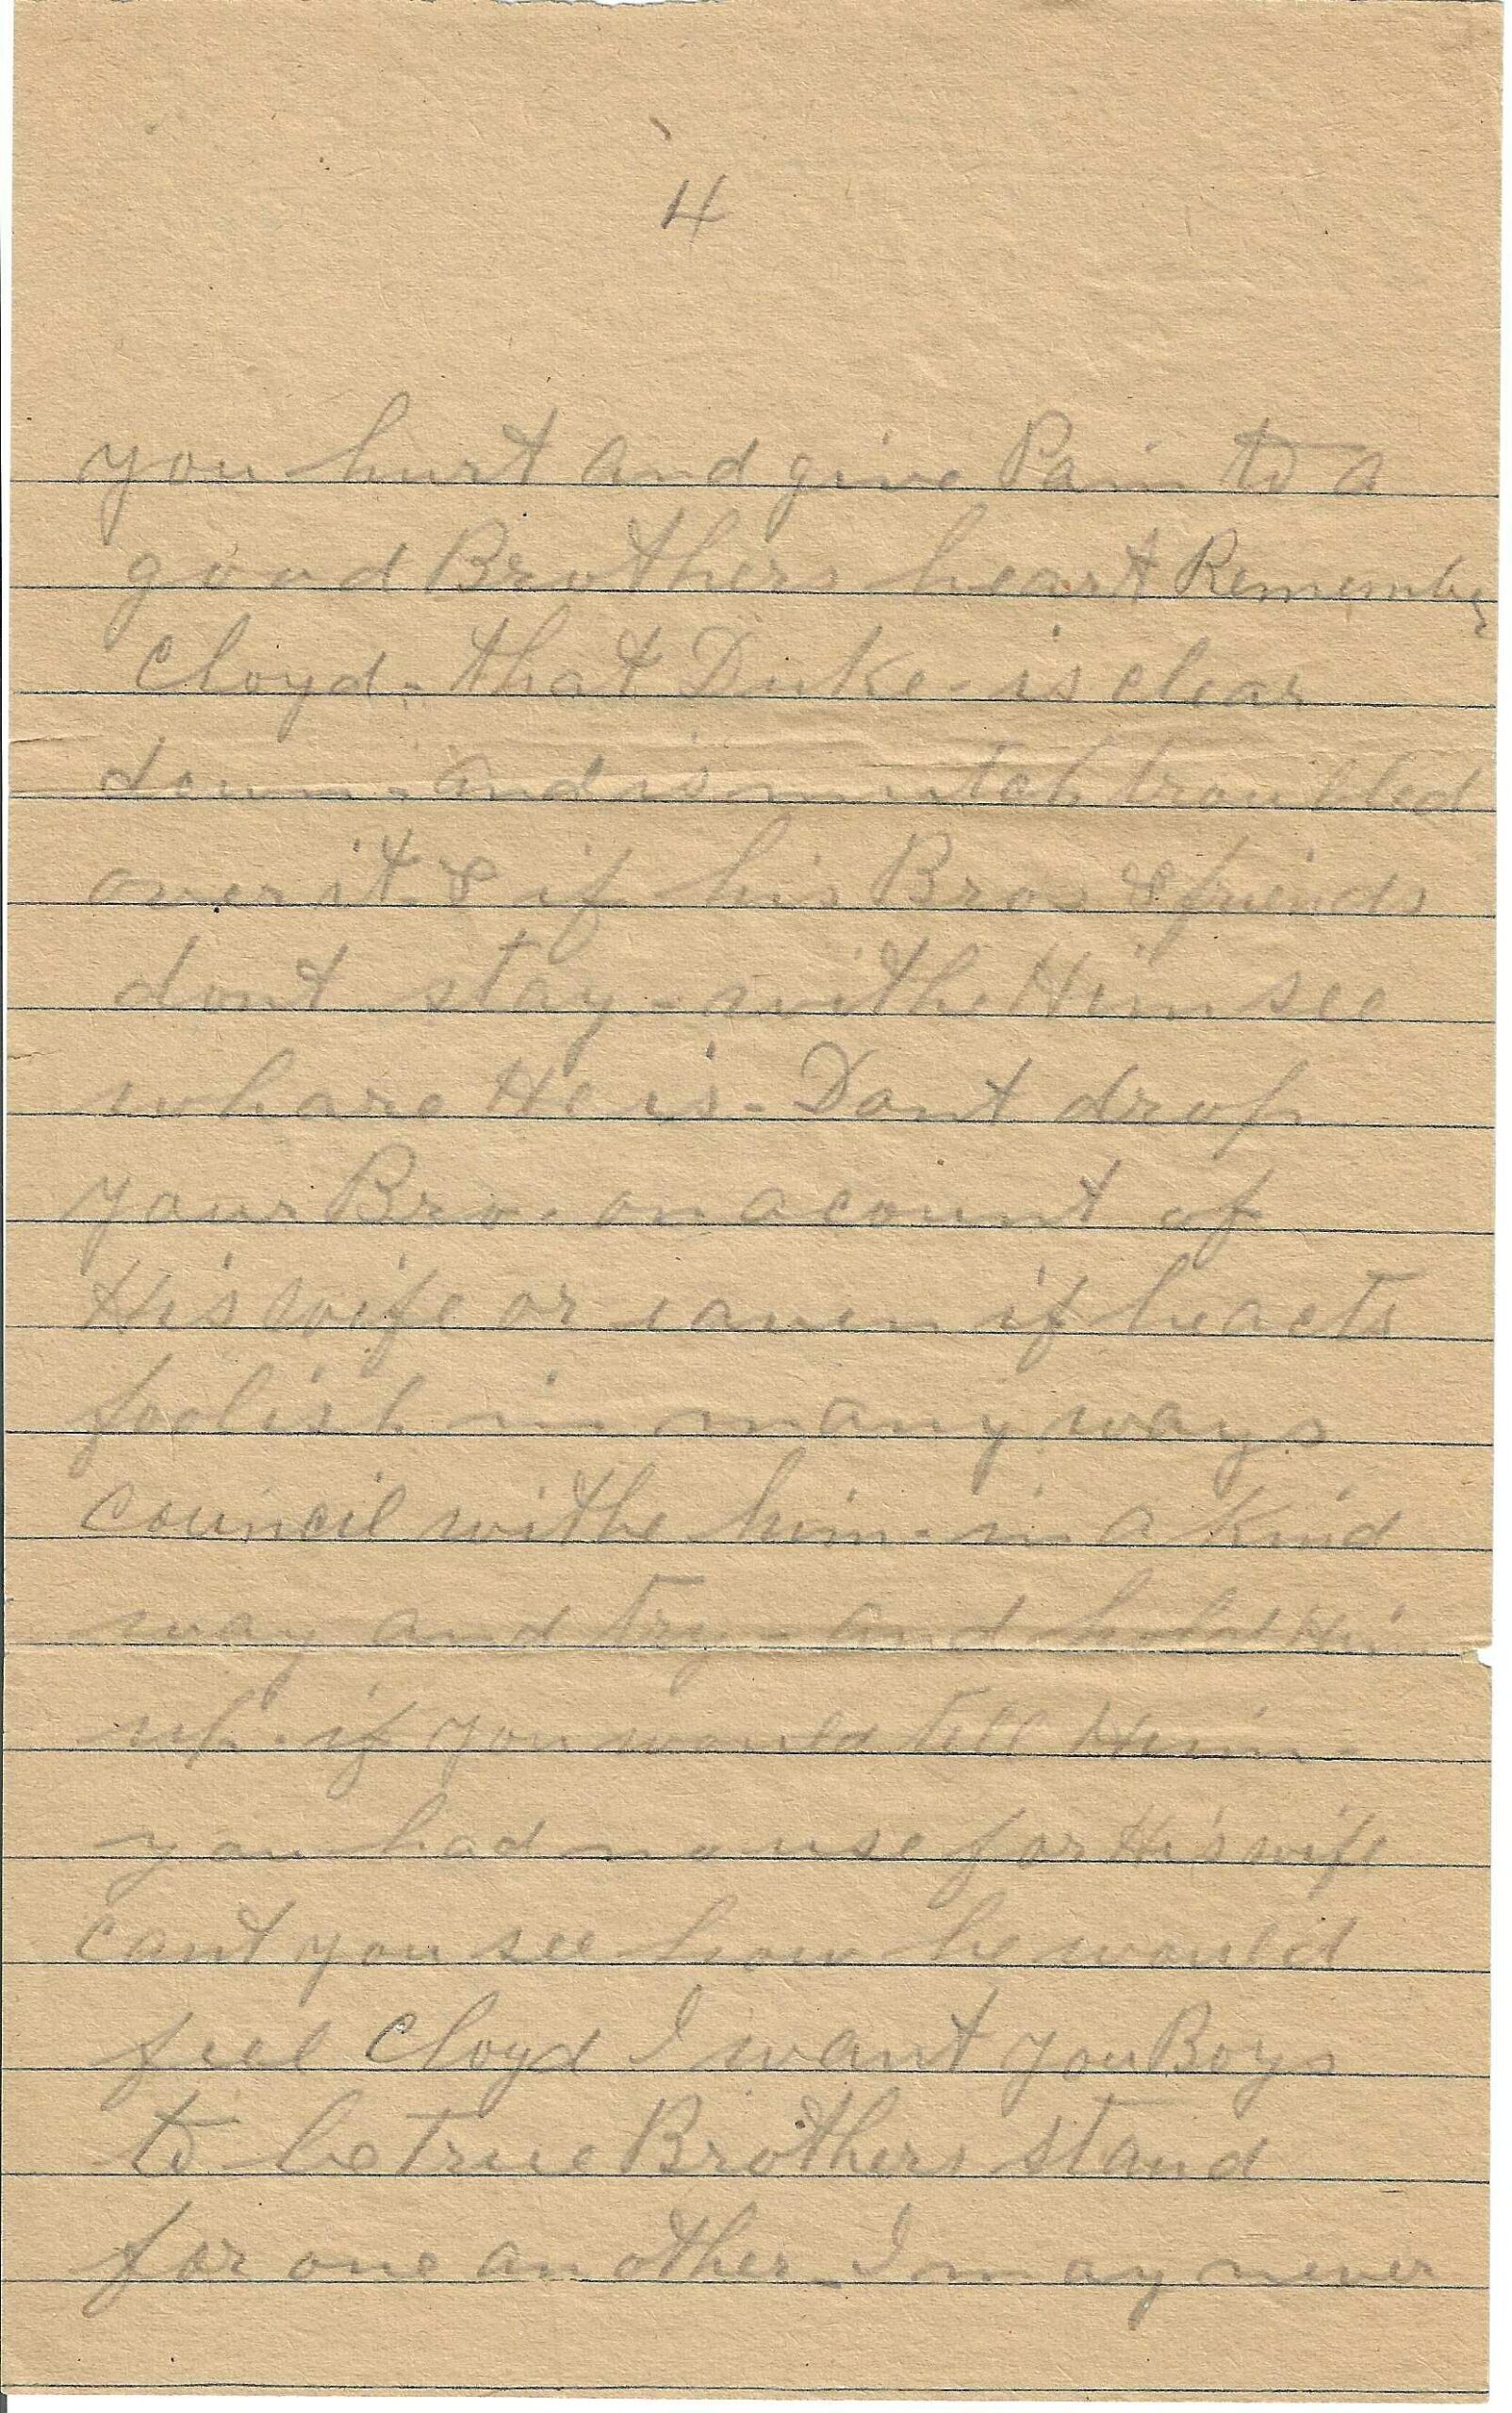 4
you hurt and give Pain to a
good Brothers heart Remember
Cloyd - that Duke - is clear
down - and is mutch troubled
over it. & if his Bros & friends
dont stay - withe Him see
whare He is - Dont drop
your Bro - on acount of
His wife or eaven if he acts
foolish in many ways
council withe him - in a kind
way and try - and hold Him
up - if you would tell Him -
you had no use for His wife
cant you see how he would
feel Cloyd I want you Boys
to be true Brothers stand
for one another - I may never